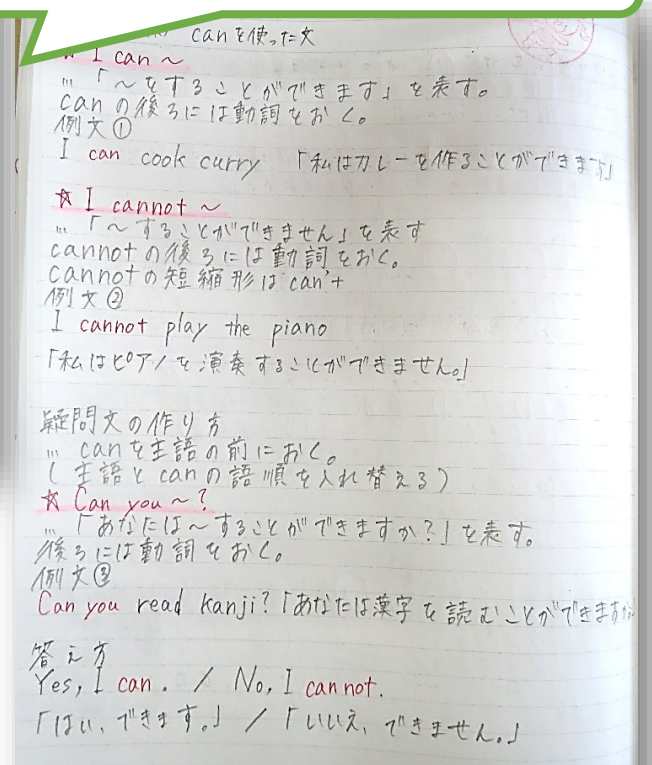 canを使った文
☆ I can ~
… 「~をすることができます」を表す。
canの後ろには動詞をおく。
例文①
I can cook curry 「私はカレーを作ることができます」
☆ I cannot ~
… 「~することができません」を表す
cannotの後ろには動詞をおく。
cannotの短縮形は can't
例文②
I cannot play the piano
「私はピアノを演奏することができません。」
疑問文の作り方
… canを主語の前におく。
(主語とcanの語順を入れ替える)
☆ Can you ~?
… 「あなたは~することができますか?」を表す。
後ろには動詞をおく。
例文③
Can you read kanji? 「あなたは漢字を読むことができますか
答え方
Yes, I can. / No, I cannot.
「はい、できます。」 / 「いいえ、できません。」